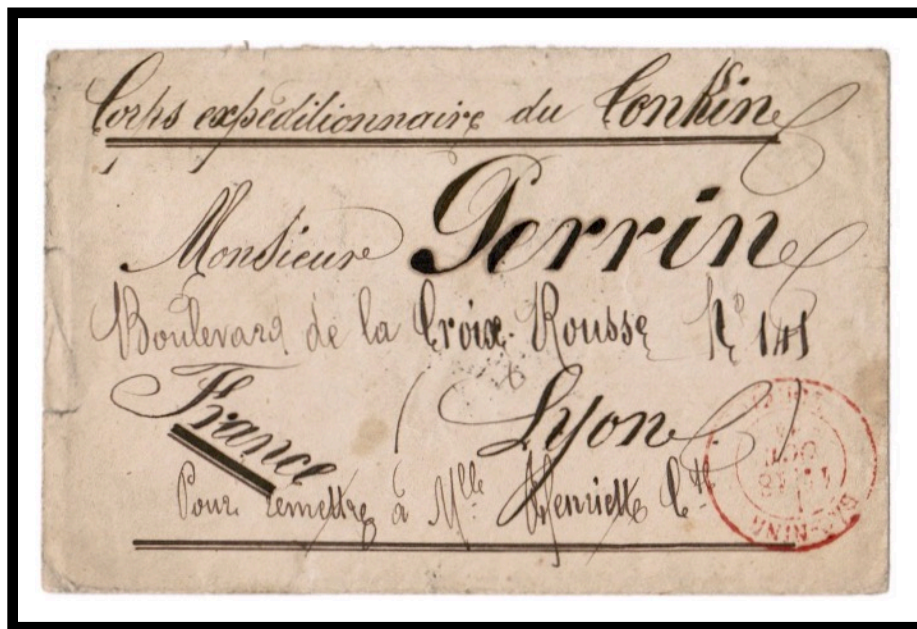 Corps expéditionnaire du Tonkin
Monsieur Perrin
Boulevard de la Croix-Rousse N° 141
France
( Lyon )
Pour remettre à Mlle Henriette